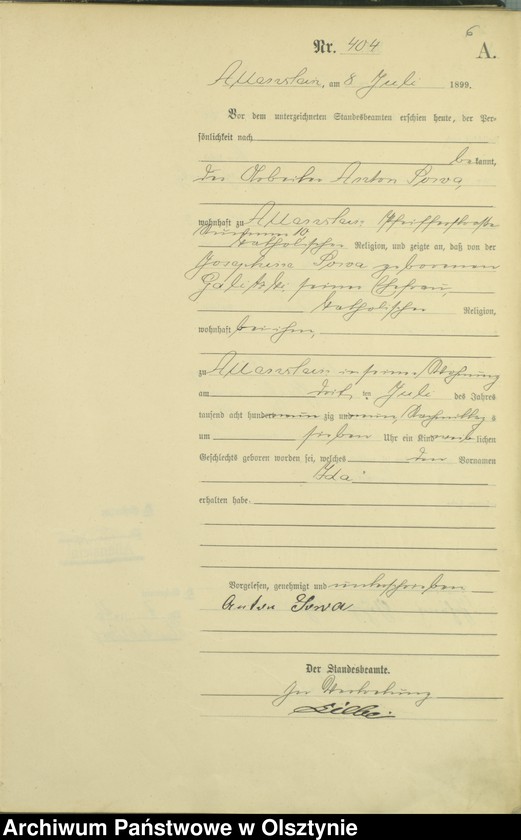 6
Nr. 404 A.
Allenstein, am 8 Juli 1899.
Vor dem unterzeichneten Standesbeamten erschien heute, der Per-
sönlichkeit nach
bekannt,
der Arbeiter Anton Sowa,
wohnhaft zu Allenstein Pfeifferstraße
Nummer 10,
katholischer Religion, und zeigte an, daß von der
Josephine Sowa geborenen
seiner Ehefrau,
katholischer Religion,
wohnhaft bei ihm,
zu Allenstein in seiner Wohnung
am Juli des Jahres
tausend acht hundert neunzig und neun, Nachmittags
um sieben Uhr ein Kind weiblichen
Geschlechts geboren worden sei, welches den Vornamen
Ida
erhalten habe.
Vorgelesen, genehmigt und unterschrieben
Anton Sowa
Der Standesbeamte.
In Vertretung
Archiwum Państwowe w Olsztynie